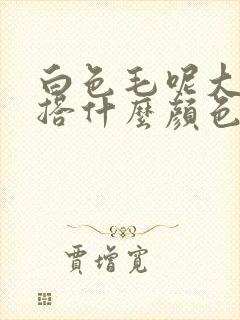 白色毛呢大
搭什麼顏色
賈增寬